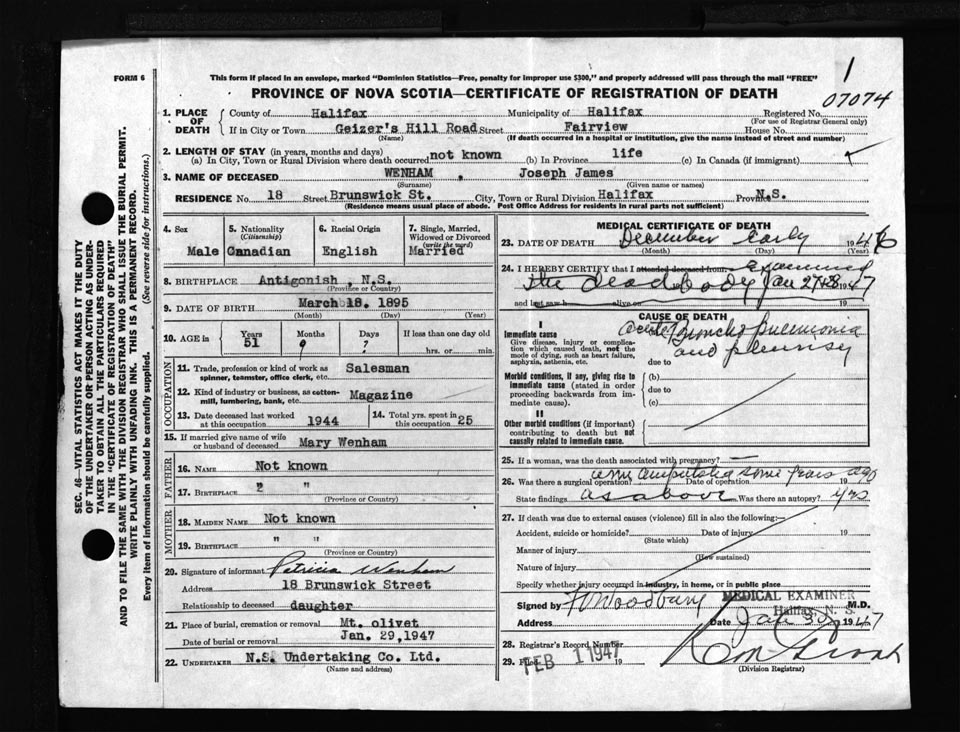 FORM 6
This form if placed in an envelope, marked "Dominion Statistics—Free, penalty for improper use $300," and properly addressed will pass through the mail "FREE"
1
07074
PROVINCE OF NOVA SCOTIA—CERTIFICATE OF REGISTRATION OF DEATH
1. PLACE OF DEATH
County of Halifax Municipality of Halifax Registered No.
(For use of Registrar General only)
If in City or Town Geizer's Hill Road Street Fairview House No.
(Name) (If death occurred in a hospital or institution, give the name instead of street and number)
2. LENGTH OF STAY (in years, months and days)
(a) In City, Town or Rural Division where death occurred not known (b) In Province life (c) In Canada (if immigrant)
3. NAME OF DECEASED WENHAM , Joseph James
(Surname) (Given name or names)
RESIDENCE No. 18 Street Brunswick St. City, Town or Rural Division Halifax Province N.S.
(Residence means usual place of abode. Post Office Address for residents in rural parts not sufficient.)
4. Sex 5. Nationality (Citizenship) 6. Racial Origin 7. Single, Married, Widowed or Divorced (write the word)
Male Canadian English Married
8. BIRTHPLACE Antigonish , N.S.
(Province or Country)
9. DATE OF BIRTH March 18. 1895
(Month) (Day) (Year)
10. AGE in Years Months Days If less than one day old
51 9 ? hrs. or min.
OCCUPATION
11. Trade, profession or kind of work as spinner, teamster, office clerk, etc. Salesman
12. Kind of industry or business, as cotton-mill, lumbering, bank, etc. Magazine
13. Date deceased last worked at this occupation 1944 14. Total yrs. spent in this occupation 25
15. If married give name of wife or husband of deceased Mary Wenham
FATHER
16. NAME Not known
17. BIRTHPLACE " "
(Province or Country)
MOTHER
18. MAIDEN NAME Not known
19. BIRTHPLACE " "
(Province or Country)
20. Signature of informant Patricia Wenham
Address 18 Brunswick Street
Relationship to deceased daughter
21. Place of burial, cremation or removal Mt. olivet
Date of burial or removal Jan. 29,1947
22. UNDERTAKER N.S. Undertaking Co. Ltd.
(Name and address)
MEDICAL CERTIFICATE OF DEATH
23. DATE OF DEATH December Early 1946
(Month) (Day) (Year)
24. I HEREBY CERTIFY that I attended deceased from Examined
the dead body Jan 27+28 1947
and last saw h alive on 19
CAUSE OF DEATH
I
Immediate cause
Give disease, injury or complication which caused death, not the mode of dying, such as heart failure, asphyxia, asthenia, etc.
acute Broncho pneumonia
and pleurisy
due to
Morbid conditions, if any, giving rise to immediate cause (stated in order proceeding backwards from immediate cause).
(b)
due to
(c)
II
Other morbid conditions (if important) contributing to death but not causally related to immediate cause.
25. If a woman, was the death associated with pregnancy?
arm amputated some years ago
26. Was there a surgical operation? Date of operation
State findings as above Was there an autopsy? yes
27. If death was due to external causes (violence) fill in also the following:—
Accident, suicide or homicide? Date of injury 19
(State which)
Manner of injury
(How sustained)
Nature of injury
Specify whether injury occurred in industry, in home, or in public place
Signed by Woodbury MEDICAL EXAMINER M.D.
Halifax, N. S.
Address Date Jan 30 1947
28. Registrar's Record Number
29. Filed FEB 1 1947 19
(Division Registrar)
SEC. 46—VITAL STATISTICS ACT MAKES IT THE DUTY
OF THE UNDERTAKER OR PERSON ACTING AS UNDER-
TAKER TO OBTAIN ALL THE PARTICULARS REQUIRED
IN THE "CERTIFICATE OF REGISTRATION OF DEATH"
AND TO FILE THE SAME WITH THE DIVISION REGISTRAR WHO SHALL ISSUE THE BURIAL PERMIT.
WRITE PLAINLY WITH UNFADING INK. THIS IS A PERMANENT RECORD.
Every item of information should be carefully supplied. (See reverse side for instructions.)